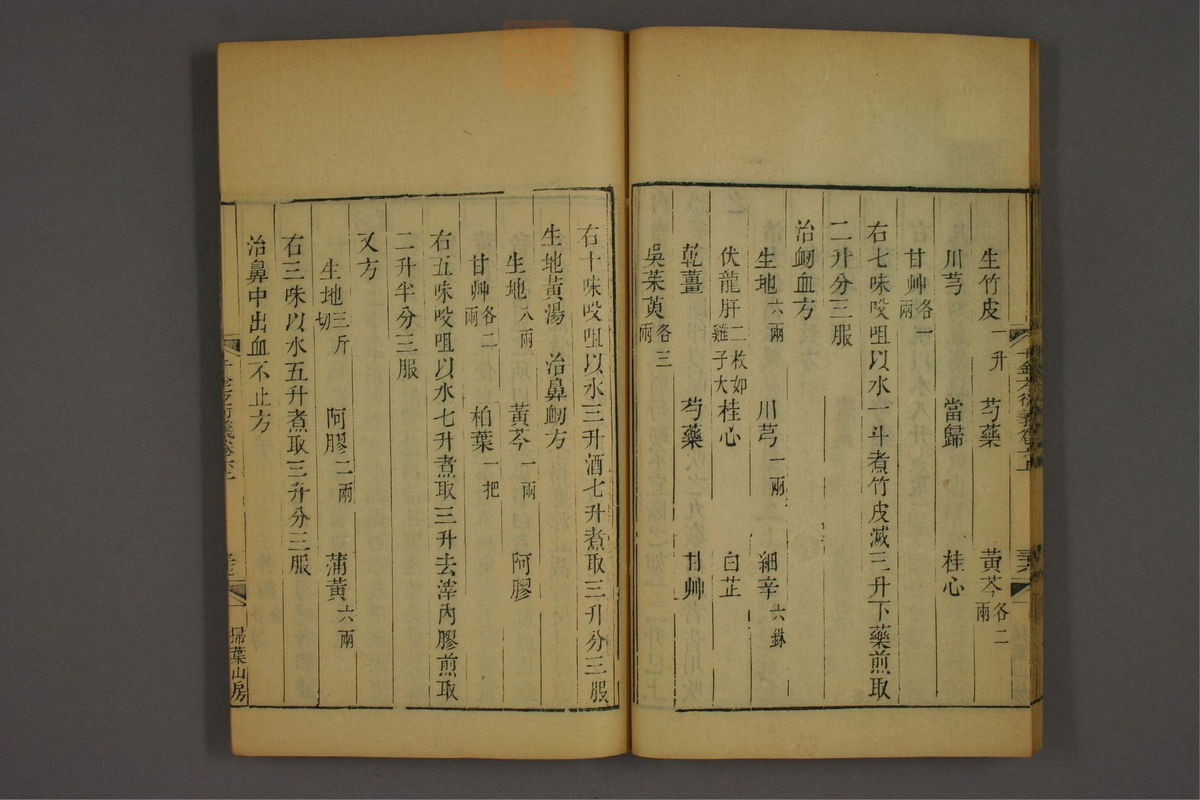 生竹皮一升 芍藥 黃芩各二兩
川芎 當歸 桂心
甘艸各一兩
右七味㕮咀以水一斗煮竹皮減三升下藥煎取
二升分三服
治衄血方
生地六兩 川芎一兩 細辛六銖
伏龍肝二枚如雞子大 桂心 白芷
乾薑 芍藥 甘艸
吳茱萸各三兩
右十味㕮咀以水三升酒七升煮取三升分三服
生地黃湯 治鼻衄方
生地八兩 黃芩一兩 阿膠
甘艸各二兩 柏葉一把
右五味㕮咀以水七升煮取三升去滓內膠煎取
二升半分三服
又方
生地三斤切 阿膠二兩 蒲黃六兩
右三味以水五升煮取三升分三服
治鼻中出血不止方
千金方衍義卷六
掃葉山房